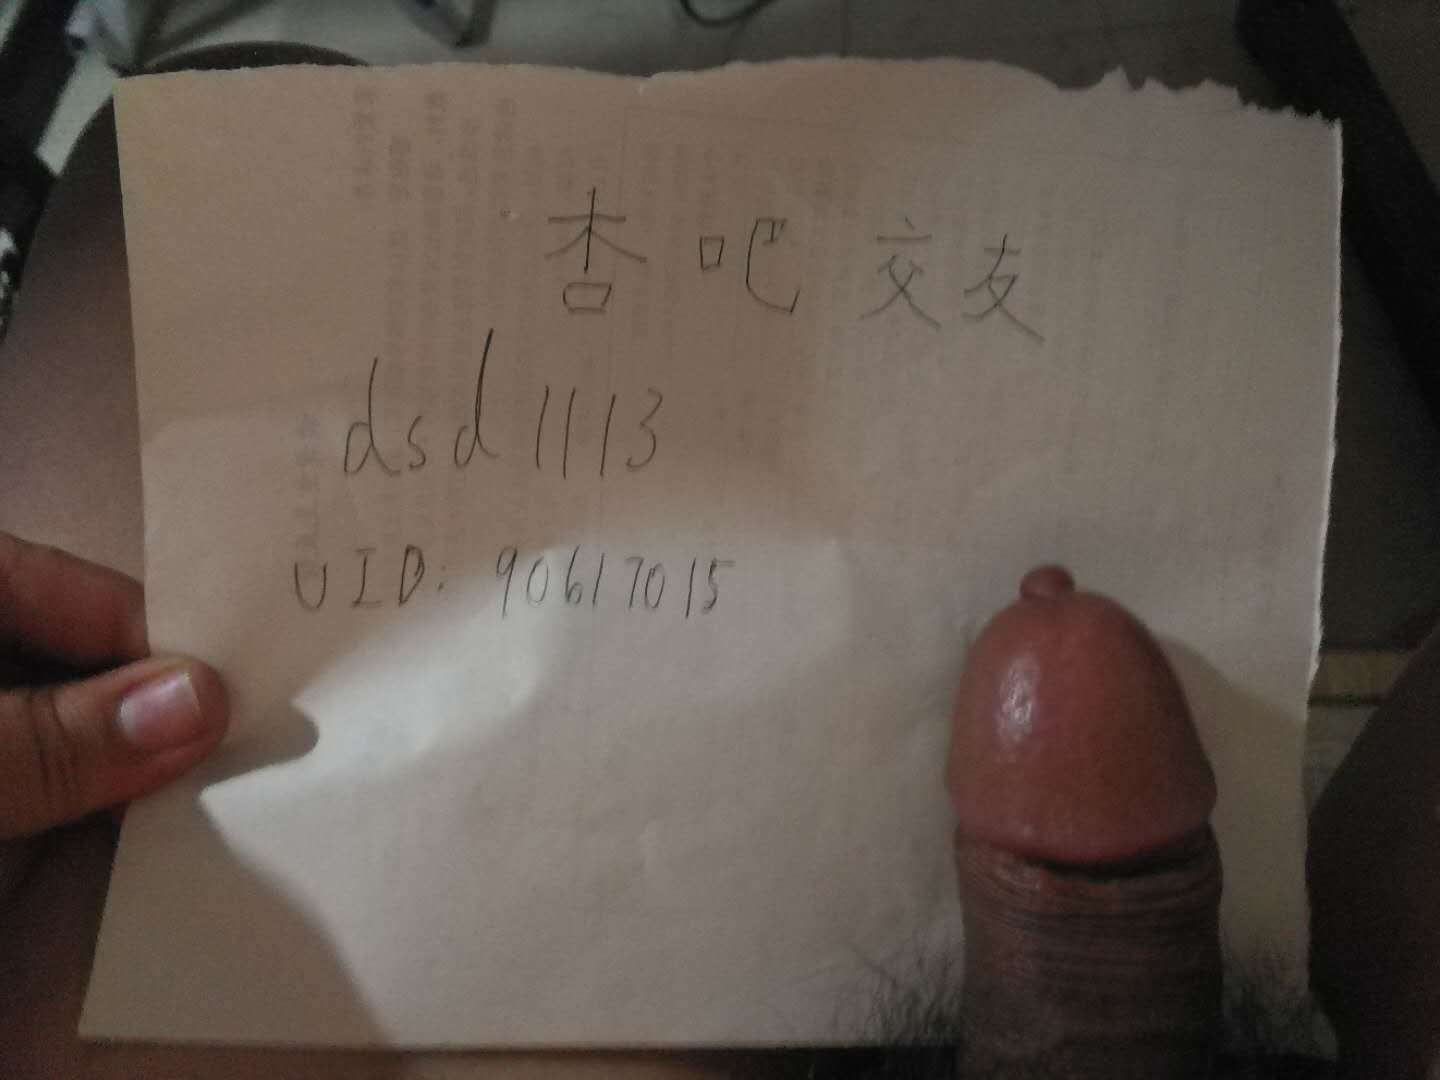 杏吧交友
dsd1113
UID:90617015